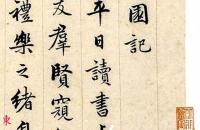 園記
平日讀書上
友羣賢窺
禮樂之緒自
東